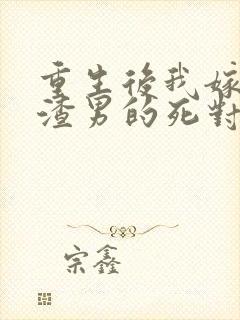 重生後我嫁
渣男的死對
宗鑫